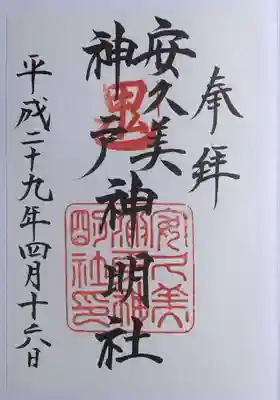 奉拝
安久美
神戸神明社
鬼
安久美神戸神明社印
平成二十九年四月十六日